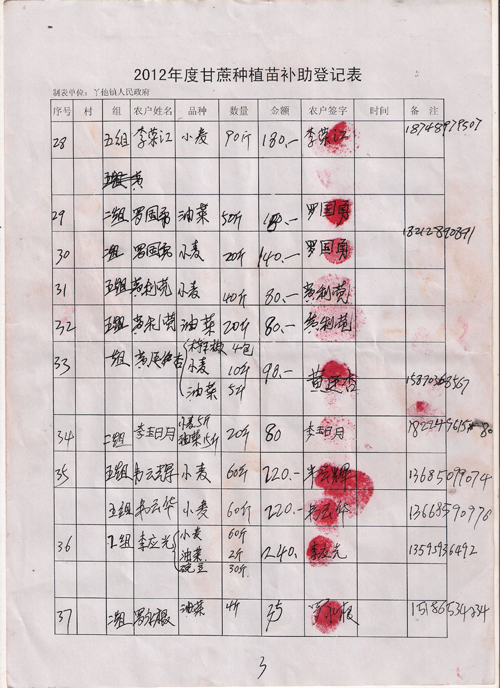 2012年度甘蔗种植苗补助登记表
制表单位：丫他镇人民政府
序号 村 组 农户姓名 品种 数量 金额 农户签字 时间 备注
28 五组 李荣江 小麦 90斤 180.- 李荣江 18748979507
29 二组 罗国勇 油菜 50斤 罗国勇
30 二组 罗国勇 小麦 20斤 140.- 罗国勇 18212890891
31 五组 黄利莞 小麦 40斤 80.- 黄利莞
32 五组 黄利莞 油菜 20斤 80.- 黄利莞
33 一组 4包
小麦 10斤 98.-
油菜 5斤 15870368567
34 二组 李钰月 小麦5斤 油菜15斤 20斤 80 李钰月
35 五组 韦云辉 小麦 60斤 220.- 韦云辉 13685099074
五组 韦云华 小麦 60斤 220.- 韦云华 13668590976
36 二组 李应光 小麦 60斤
油菜 2斤 240. 李应光 13595936492
豌豆 30斤
37 二组 油菜 4斤 15186534234
3